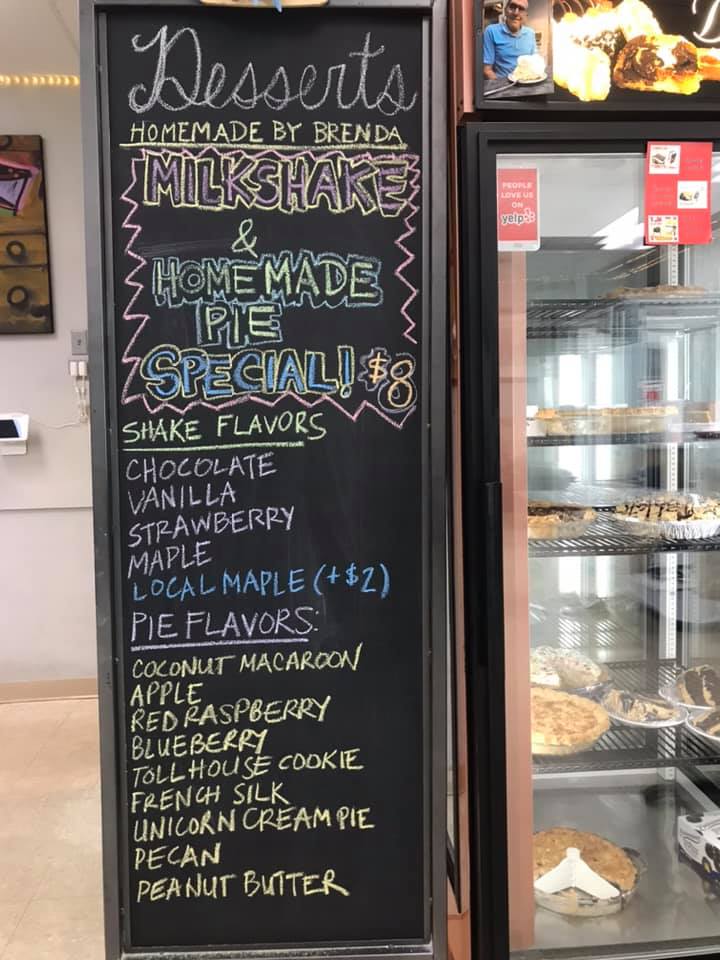 Desserts
HOMEMADE BY BRENDA
MILKSHAKE
&
HOMEMADE
PIE
SPECIAL! $8
SHAKE FLAVORS
CHOCOLATE
VANILLA
STRAWBERRY
MAPLE
LOCAL MAPLE (+$2)
PIE FLAVORS:
COCONUT MACAROON
APPLE
RED RASPBERRY
BLUEBERRY
TOLL HOUSE COOKIE
FRENCH SILK
UNICORN CREAM PIE
PECAN
PEANUT BUTTER
PEOPLE
LOVE US
ON
yelp